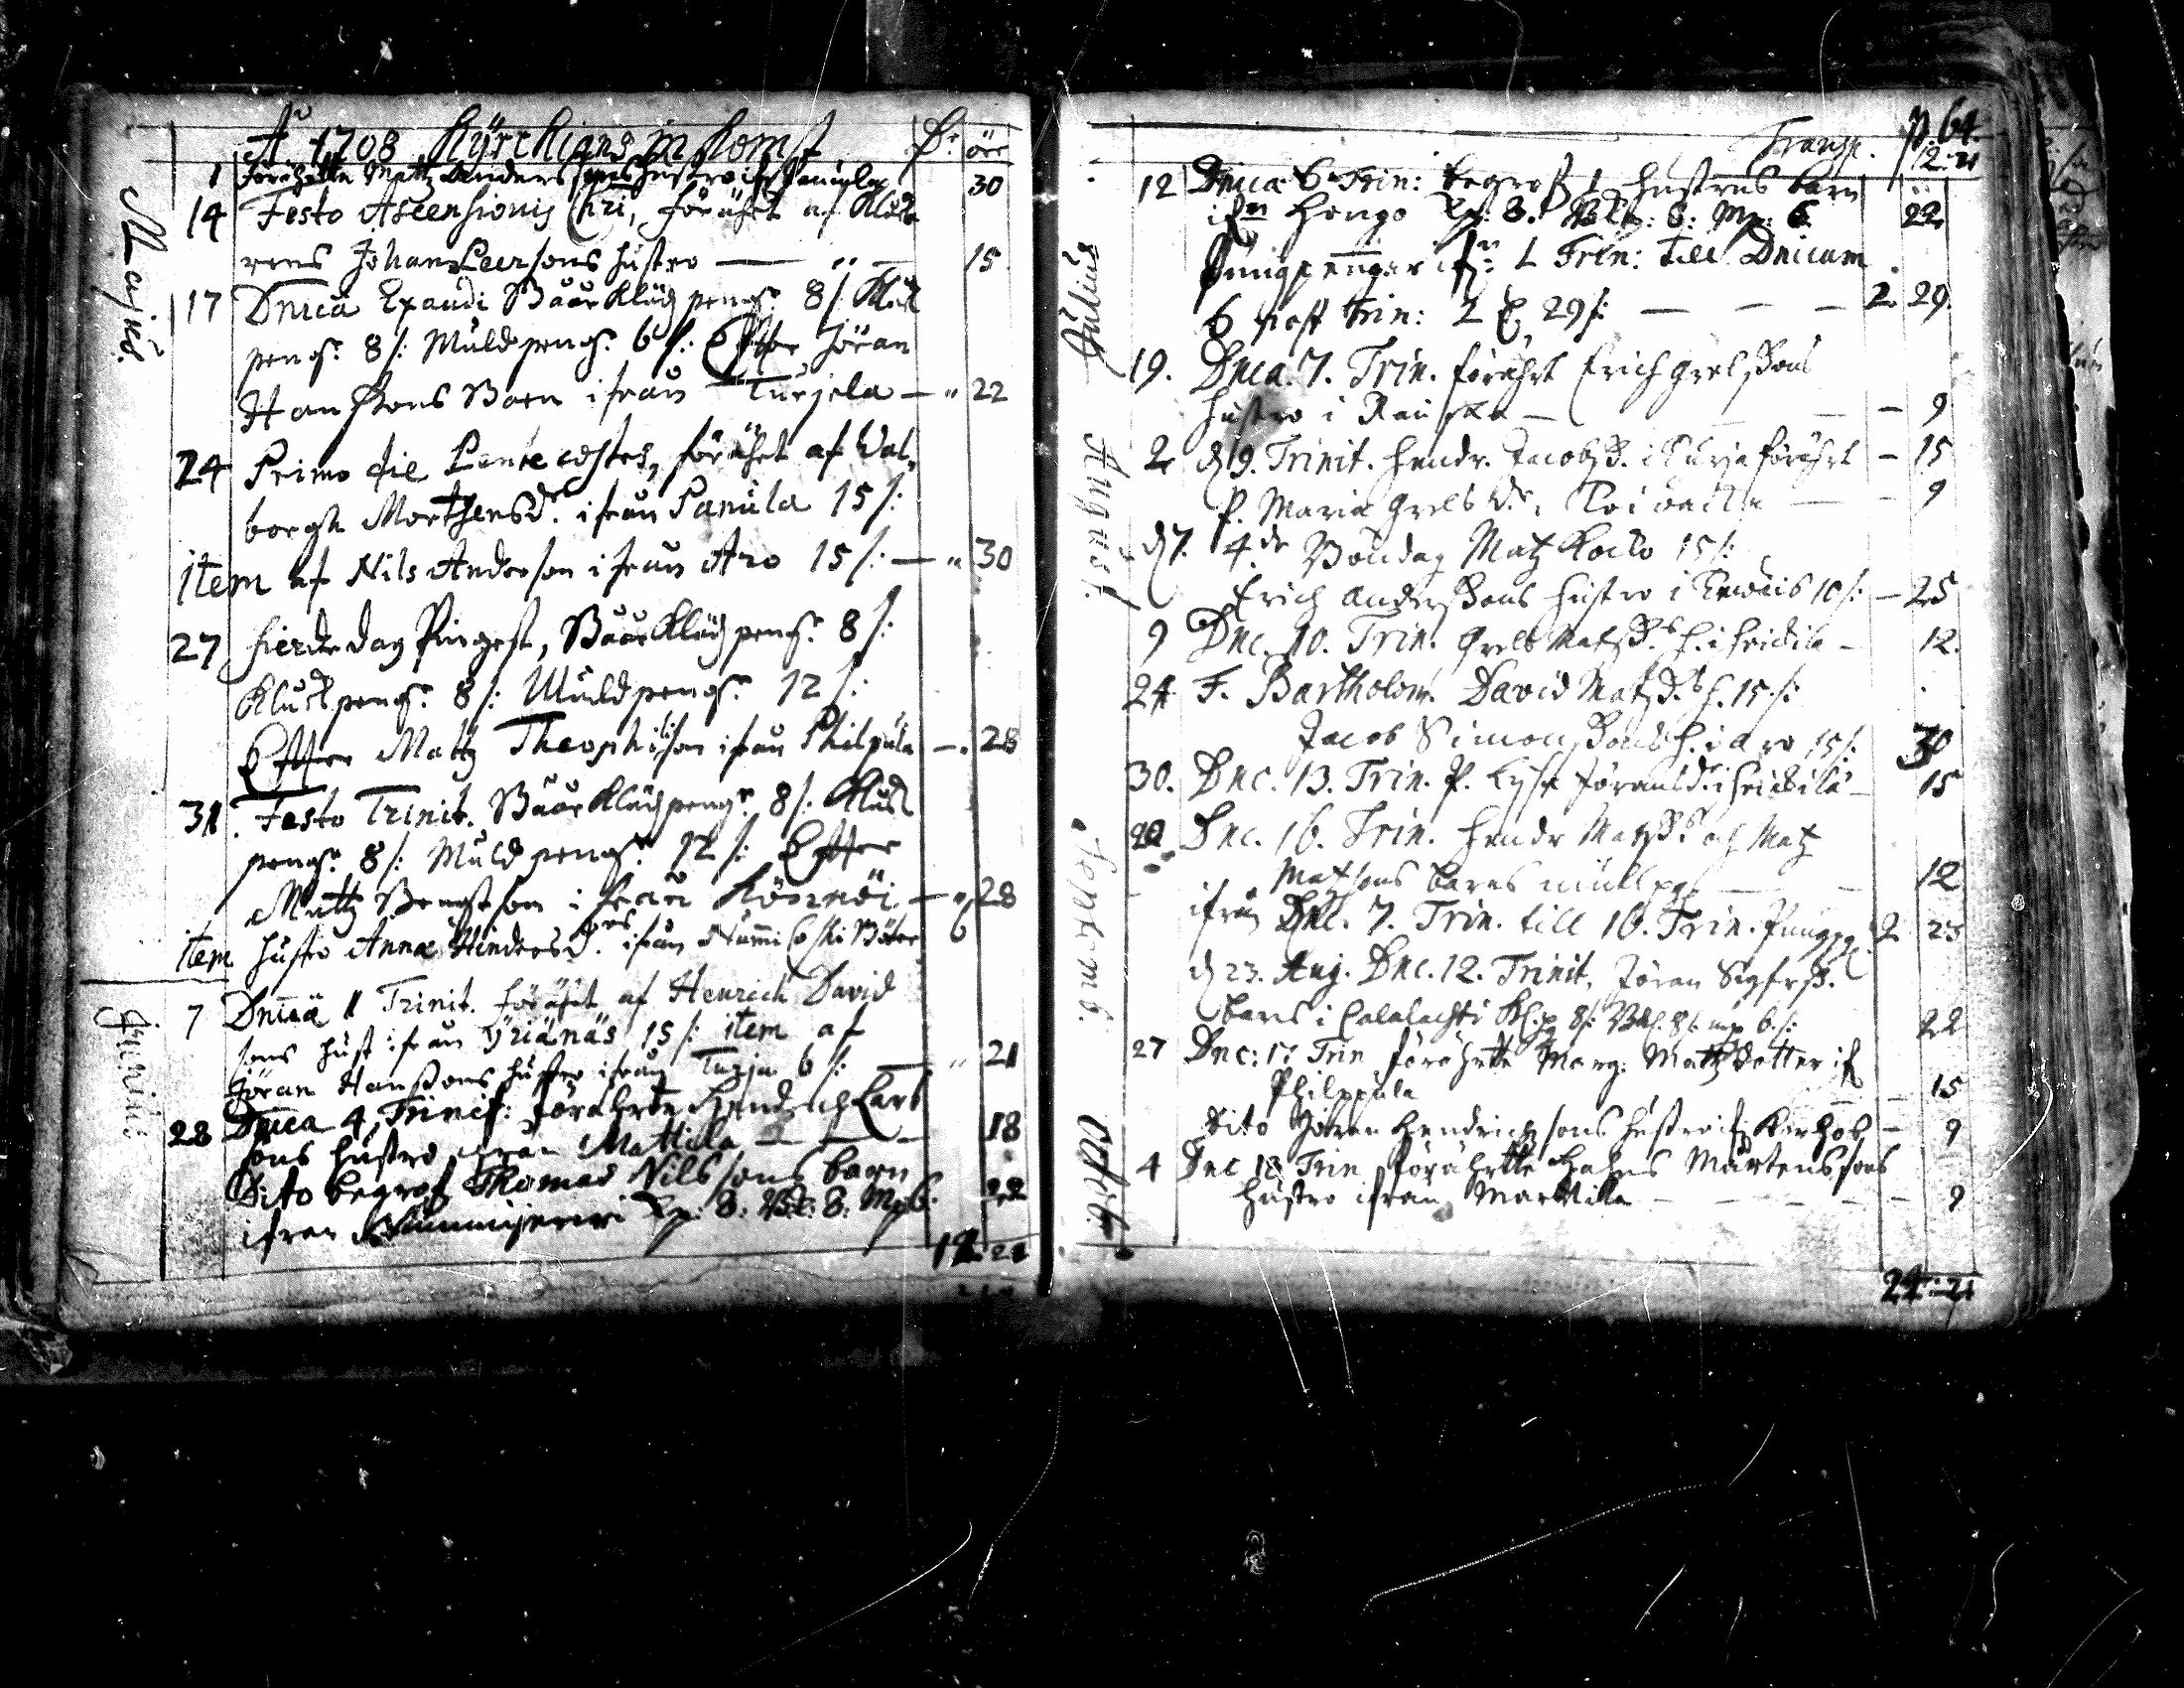 Aō 1708 Kÿrckians in komst Dr öre
Majus.
1 Förährtte Mattz Anders sons hustro ifr Panula 30
14 Festo Ascensionis Chri, förährt af Klåcka
rens Johan Peersons hustro — „ — 15
17 Dnica Exaudi Båår Klädz pengr 8 /: Kluck
pengr 8 /: Muld pengr 6 /: Effter Jöran
Hanssons Barn ifrån Turjela — „ 22
24 Primo die Pentecostes, förährt af Wal„
borgh Morthensdr ifrån Panula 15 /:
item af Nils Anderson ifrån Aro 15 /: — „ 30
27 fierde dag Pingest, Båår Klädz pengr 8 /:
Kluckpengr 8 /: Muldpengr 12 /:
Effter Mattz Theophilison ifrån Philpula — „ 28
31. Festo Trinit. Båår Klädzpengr 8 /. Kluck
pengr 8 /: Muld pengr 12 /: Effter
Mattz Bengtson ifrån — „ 28
item hustro Anna Hindersdr ifrån 6
Junius
7 Dnica 1 Trinit. förährt af Henrich David
sons hust ifrån Yriänäs 15 /: item af
Jöran Hanssons hustro ifrån Turja 6 /: — „ 21
28 Dnica 4, Trinit: förährte Hendrich Lars
sons hustro ifrån Mattila — — — 18
Dito begrofs Thomas Nilssons barn
ifrån Kp: 8: Bk: 8: Mp 6. 22
12 21
p. 64.
Transp. 12. 21
Julius
12 Dnica 6 Trin: begrofs 1 hustrus barn
ifrn Hongo Kp: 8. Bkp: 8: Mp: 6 22
Pungpenngar ifrn 1 Trin: till Dnicam
6 post trin: 2 D. 29 /: — — — 2 29.
19. Dnca. 7. Trin. förährt Erich Grelssons
hustro i — — — 9
August.
2 d 9. Trinit. Hendr. Jacobss. i Turja förährt — 15
P. Maria Grelsdr. — — 9
d 7. 4de Böndag Matz 15 /:
Erich Anderssons hustro i 10 /: — 25
9 Dnc. 10. Trin. Grels Matss. h. i Heickilä — 12.
24 F. Bartholom. David Matzs. h. 15 /:
Jacob Simonssons h. i Aro 15 /: 30
30. Dnc. 13. Trin. P. Lysa Joransd. i Heickilä — 15
Septemb.
20 Dnc. 16. Trin. Hendr Matss. och Matz
Matsons barns mullpg. — — 12
ifrån Dnc. 7. Trin. till 16. Trin. Pungpg. 2 23
d 23. Aug. Dnc. 12. Trinit. Jöran Sigfrss.
barn i Kl.p 8 /: Bkl. 8 /: mp 6. /: 22
27 Dnc: 17 Trin förährtte Marg: Mattzdotter if
Philppula — — 15
Dito Jöran Hendrichsons hustro ifr — 9
Octob.
4 Dnc 18 Trin förährtte Mårtenssons
hustro ifrån Markkila — — — — 9
24: 21